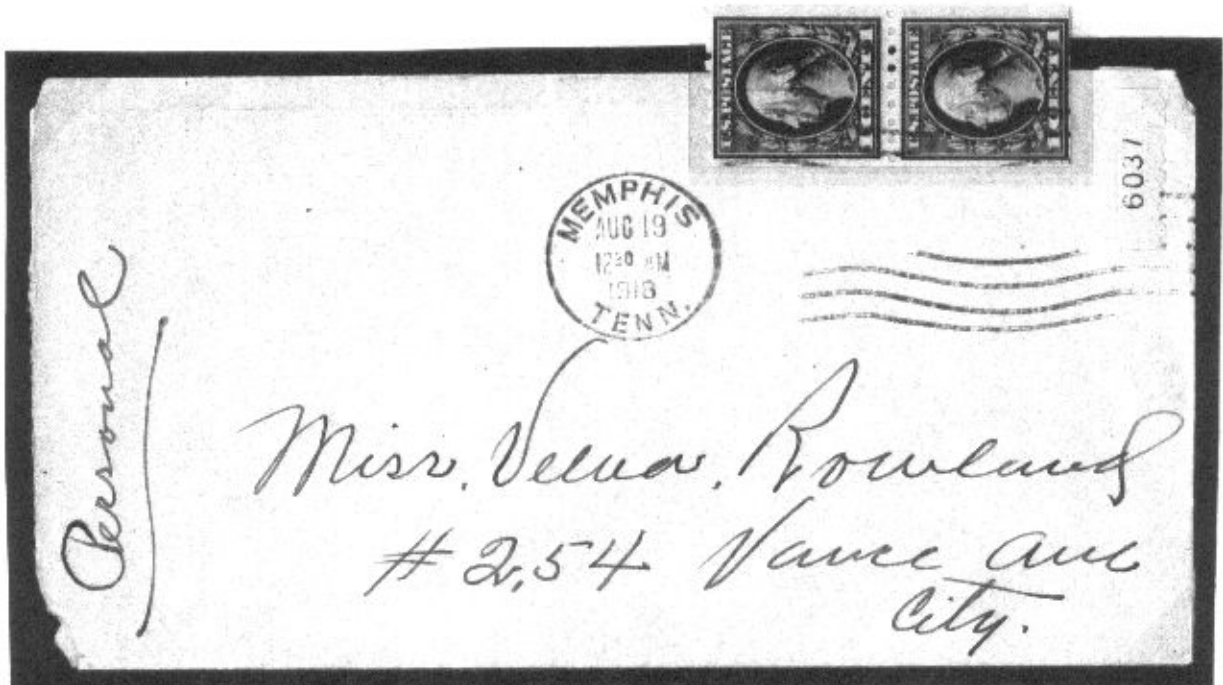 U.S. POSTAGE
1 CENT 1
U.S. POSTAGE
1 CENT 1
6037
MEMPHIS
AUG 19
12 30 PM
1918
TENN.
Personal
Miss. Velva. Rowland
# 2,54 Vance Ave
City.